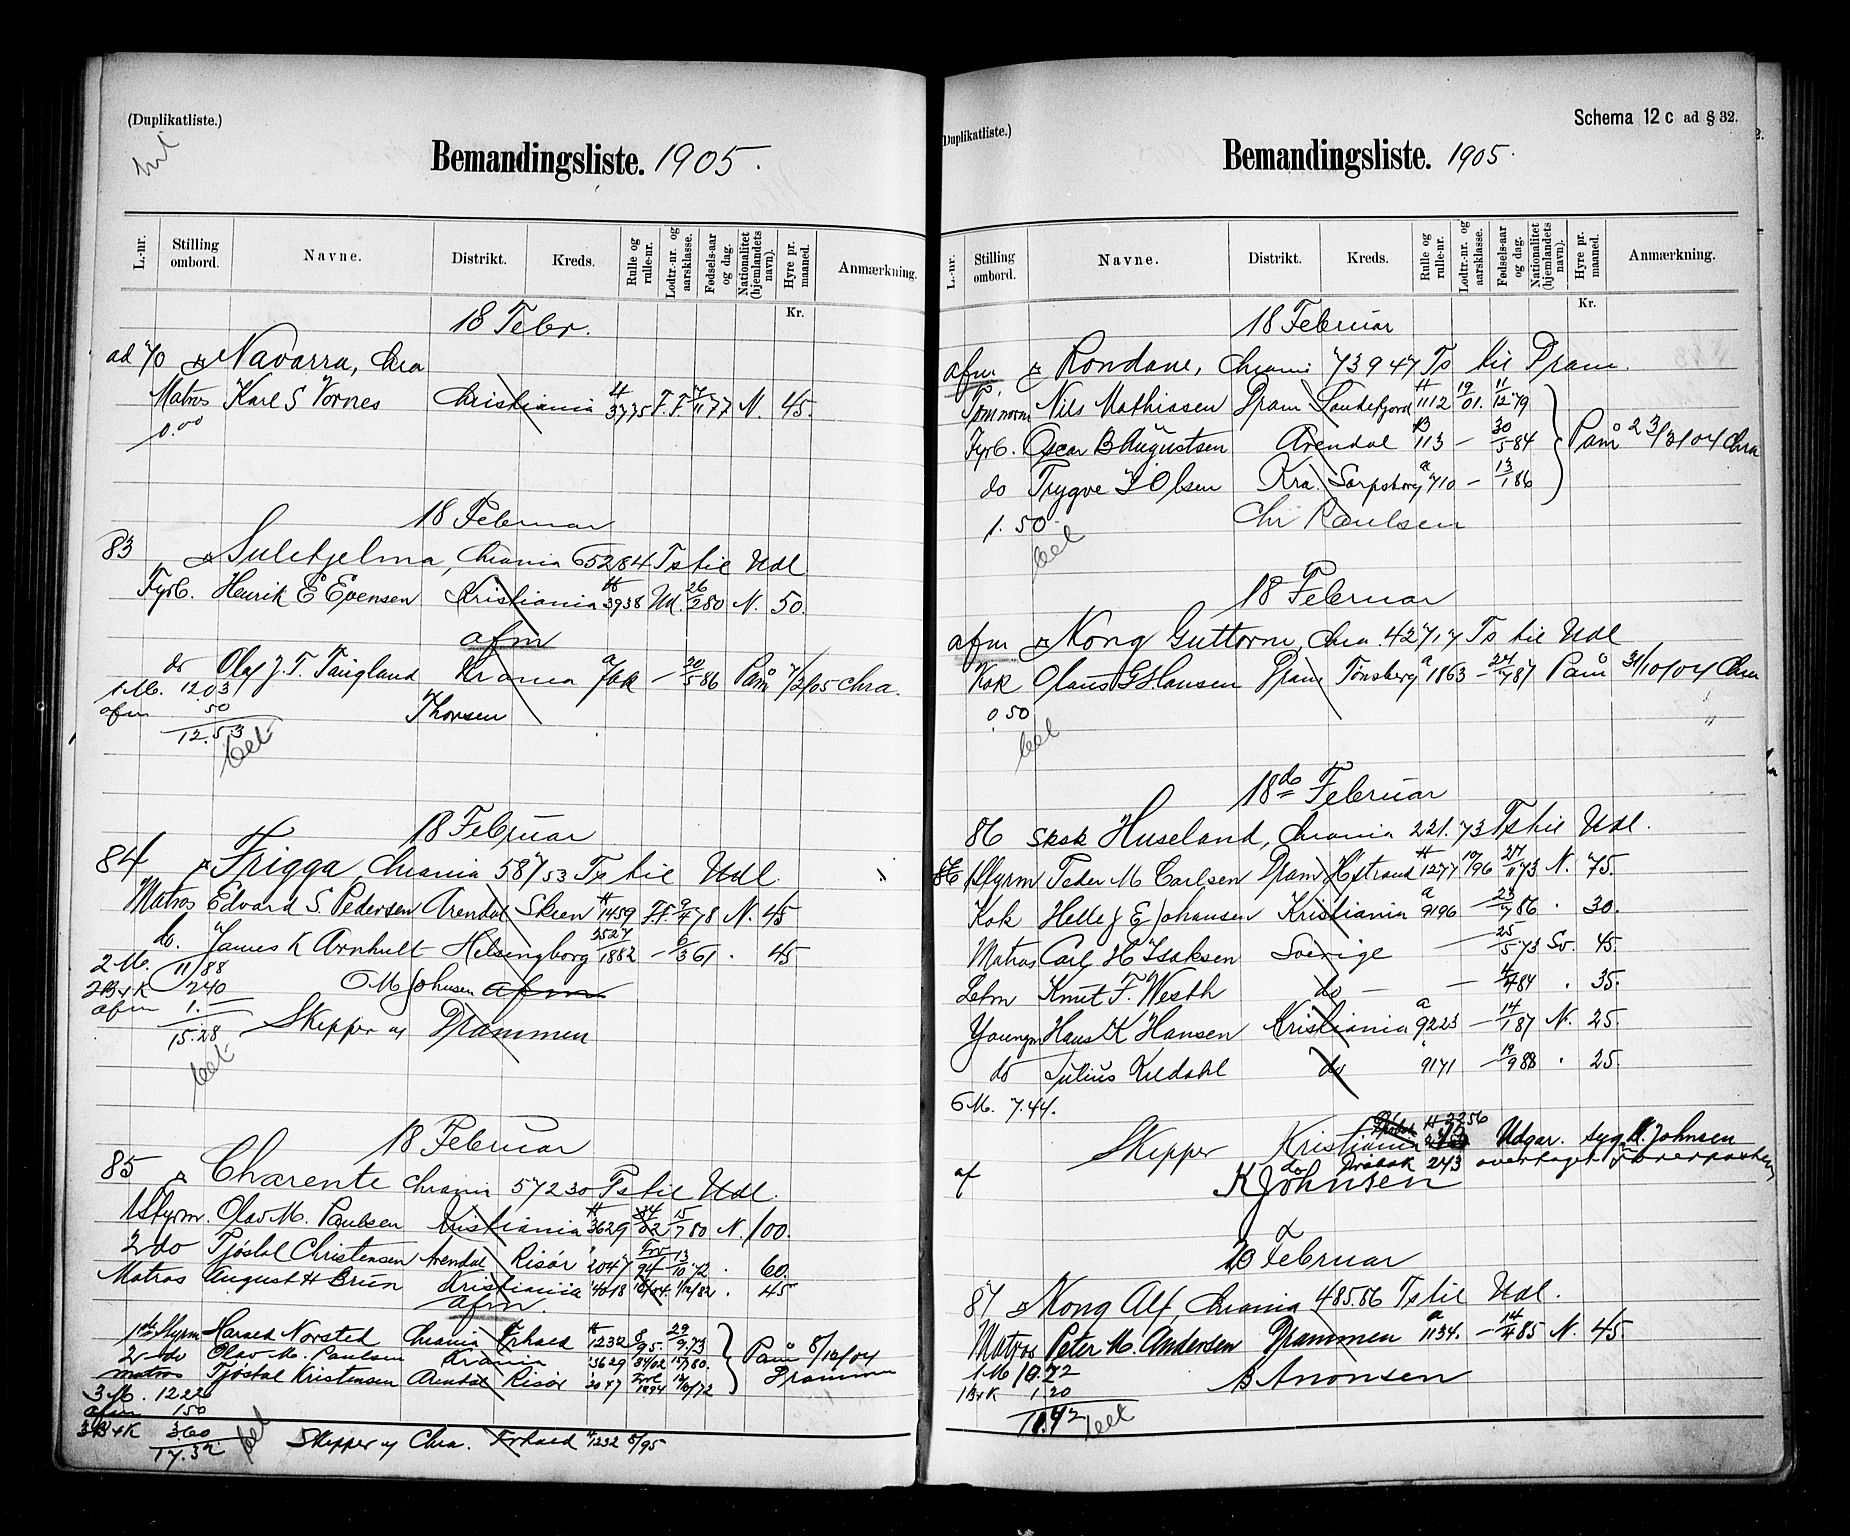 (Duplikatliste.)
Bemandingsliste. 1905.
L.-nr. Stilling ombord. Navne. Distrikt. Kreds. Rulle og rulle-nr. Lodtr.-nr. og aarsklasse. Fødsels-aar og dag. Nationalitet (hjemlandets navn). Hyre pr. maaned. Anmærkning.
Kr.
18 Febr.
ad 70 Navarra, Chra
Matros Karl S Vornes Christiania 3775 F.F. 7/11 77 N. 45.
0.00
18 Februar
83 Sulitjelma, Chrania 652 84 Ts til Udl
Fyrb. Henrik E Evensen Kristiania 3938 Ud. 26/2 80 N. 50.
afm
do Olaf J. T. Taugland Krania a 20/5 86 Paam 7/2/05 Chra.
1 M. 12.03
afm 50
12.53
Thorsen
18 Februar
84 Frigga, Chrania 587/53 Ts til Udl.
Matros Edvard S. Pedersen Arendal Skien 1459 F.F. 9/4 78 N. 45
do. James K Arnhult Helsingborg 1882 6/3 61 . 45
2 M. 11/88
2B+K 240
afm 1.
15.28
O M Johnsen afm
Skipper af Drammen
18 Februar
85 Charente Chrania 572 30 Ts til Udl.
1 Styrm. Olav M. Paulsen Kristiania 3629 34/02 15/7 80 N. 100.
2 do Tjøstol Christensen Arendal Risør 2047 94 13/10 72 . 60.
Matros August H Brun Kristiania 4018 1/12/82 . 45
afm.
1ste Styrm Harald Norsted Chrania 1232 8/95. 29/9 73
2 do Olav M. Paulsen Krania 3629 34/02 15/7 80. Paam 8/10/04
matros Tjøstol Kristensen Arendal Risør 2047 1894 13/10/72 Drammen
3 M. 1222
afm 150
3B+K 3.60
17.32
Skipper af Chra. 1232 8/95
(Duplikatliste.)
Schema 12 c ad § 32.
Bemandingsliste. 1905.
L.-nr. Stilling ombord. Navne. Distrikt. Kreds. Rulle og rulle-nr. Lodtr.-nr. og aarsklasse. Fødsels-aar og dag. Nationalitet (hjemlandets navn). Hyre pr. maaned. Anmærkning.
Kr.
18 Februar
afm Rondane, Chrania 739 47 Ts til Dram.
Tømrm Nils Mathiasen Dram Sandefjord 1112 19/01. 11/12 79
Fyrb. Oscar B Augustsen Arendal 113 – 30/5 84 Paam 23/3/04 Chra
do Trygve J Olsen Kra. Sarpsborg a 710 – 13/1 86
1.50
Chr Paulsen
18 Februar
afm Kong Guttorm, Chra. 427,17 Ts til Udl
Kok Olaus G Hansen Dram Tønsberg a 1863 – 24/7 87 Paam 31/10/04 Chra
0.50
18de Februar
86 Sksk Huseland, Chrania 221.73 Ts til Udl.
86 1 Styrm Peder M Carlsen Dram Hstrand 1277 10/96 27/11 73 N. 75.
Kok Helle J E Johansen Kristiania a 9196 – 23/7 86 . 30.
Matros Carl H Isaksen Sverige – 25/5 73 Sv. 45.
Letm Knut F. Westh do – – 4/4 84 . 35.
Youngm Hans K Hansen Kristiania a 9223 – 14/1 87 N. 25.
do Julius Kildahl do 9171 – 19/9 88 . 25.
6 M. 7.44.
Skipper Kristiania 2256 Udgar. syg K. Johnsen
af do Drøbak 243 overtaget Førerposten
K Johnsen
20 Februar
87 Kong Alf, Chrania 485.86 Ts til Udl.
Matros Peter M. Andersen Drammen a 1134. – 14/4 85 N. 45
1 M 9.22
1B+K 1.20
10.42
B Anonsen